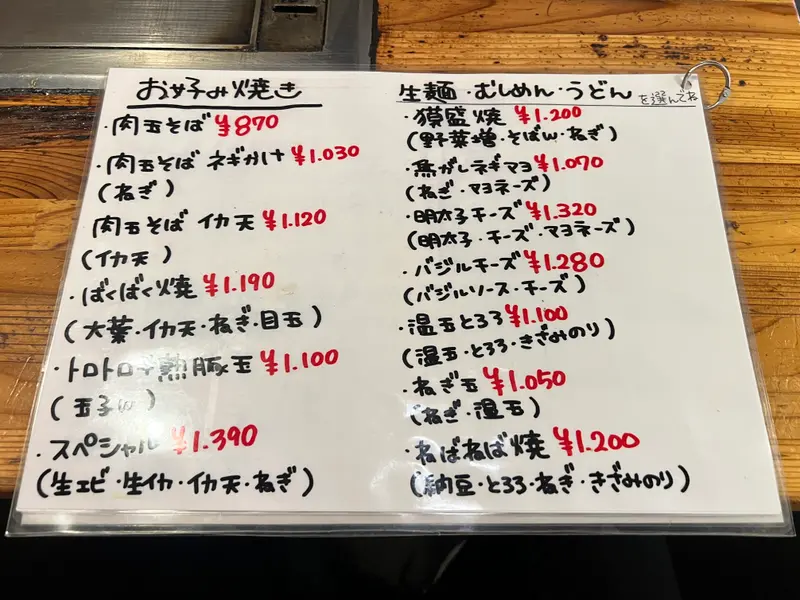 お好み焼き
・肉玉そば ¥870
・肉玉そば ネギかけ ¥1.030
(ねぎ)
肉玉そば イカ天 ¥1.120
(イカ天)
・ばくばく焼 ¥1.190
(大葉・イカ天・ねぎ・目玉)
・トロトロ半熟豚玉 ¥1.100
(玉子W)
・スペシャル ¥1.390
(生エビ・生イカ・イカ天・ねぎ)
生麺・むしめん・うどん を選んでね
・獏盛焼 ¥1.200
(野菜増・そばW・ねぎ)
・焦がしネギマヨ ¥1.070
(ねぎ・マヨネーズ)
・明太子チーズ ¥1.320
(明太子・チーズ・マヨネーズ)
・バジルチーズ ¥1.280
(バジルソース・チーズ)
・温玉とろろ ¥1.100
(温玉・とろろ・きざみのり)
・ねぎ玉 ¥1.050
(ねぎ・温玉)
・ねばねば焼 ¥1.200
(納豆・とろろ・ねぎ・きざみのり)